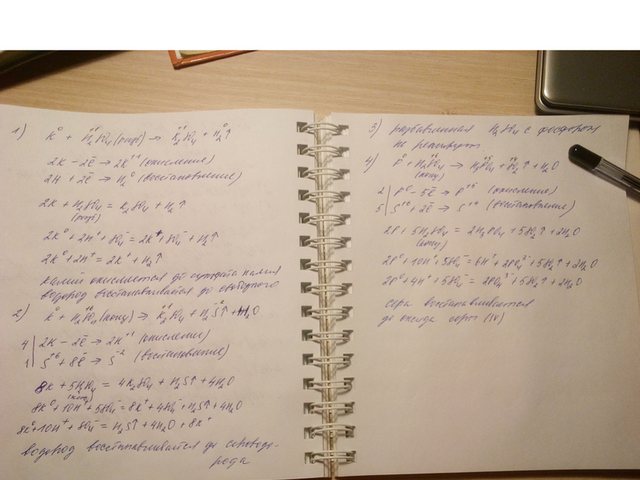 1) K⁰ + H₂⁺¹SO₄ (разб) → K₂⁺¹SO₄ + H₂⁰↑
2K - 2ē → 2K⁺¹ (окисление)
2H + 2ē → H₂⁰ (восстановление)
2K + H₂SO₄ = K₂SO₄ + H₂↑
(разб)
2K⁰ + 2H⁺ + SO₄⁻ = 2K⁺ + SO₄⁻ + H₂↑
2K⁰ + 2H⁺ = 2K⁺ + H₂↑
калий окисляется до сульфата калия
водород восстанавливается до свободного
2) K⁰ + H₂SO₄ (конц) → K₂SO₄ + H₂S↑ + H₂O
4 | 2K - 2ē → 2K⁺¹ (окисление)
1 | S⁺⁶ + 8ē → S⁻² (восстановление)
8K + 5H₂SO₄ = 4K₂SO₄ + H₂S↑ + 4H₂O
(конц)
8K⁰ + 10H⁺ + 5SO₄⁻ = 8K⁺ + 4SO₄⁻ + H₂S↑ + 4H₂O
8K + 10H⁺ + SO₄⁻ = H₂S↑ + 4H₂O + 8K⁺
водород восстанавливается до сероводо-
рода
3) разбавленная H₂SO₄ с фосфором
не реагирует
4) P⁰ + H₂SO₄ → H₃PO₄ + SO₂↑ + H₂O
(конц)
2 | P⁰ - 5ē → P⁺⁵ (окисление)
5 | S⁺⁶ + 2ē → S⁺⁴ (восстановление)
2P + 5H₂SO₄ = 2H₃PO₄ + 5SO₂↑ + 2H₂O
(конц)
2P⁰ + 10H⁺ + 5SO₄⁻ = 6H⁺ + 2PO₄³⁻ + 5SO₂↑ + 2H₂O
2P⁰ + 4H⁺ + 5SO₄⁻ = 2PO₄³⁻ + 5SO₂↑ + 2H₂O
сера восстанавливается
до оксида серы (IV)